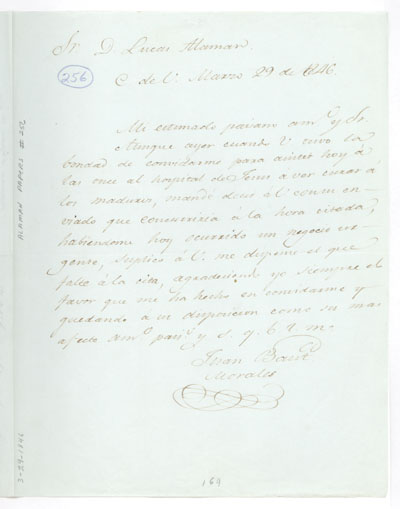 Sr. D. Lucas Alaman.
256
C. de U. Marzo 29 de 1846.
Mi estimado paisano am.º y Sr.
Aunque ayer cuando V. tuvo la
bondad de convidarme para asistir hoy á
las once al hospital de Jesus á ver curar á
los maduros, mandé decir á V. con su en
viado que concurriria á la hora citada,
habiendome hoy ocurrido un negocio ur
gente, suplico á V. me dispense el que
falte á la cita, agradeciendo yo siempre el
favor que me ha hecho en convidarme y
quedando á su disposicion como su mas
afecto am.º pais.º y s. q. b. s. m.
Juan Baut.
Morales
169
ALAMAN PAPERS # 256
3-29-1846